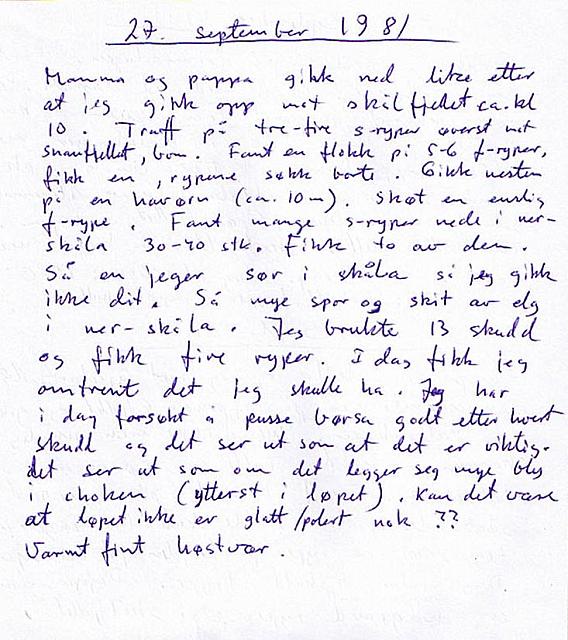 27. september 1981
Mamma og pappa gikk ned like etter
at jeg gikk opp mot skålfjellet ca. kl
10. Traff på tre-fire s-ryper øverst mot
snaufjellet, bom. Fant en flokk på 5-6 f-ryper,
fikk en, rypene søkk borte. Gikk nesten
på en havørn (ca. 10m). Skøt en enslig
f-rype. Fant mange s-ryper nede i ner-
skåla 30-40 stk. Fikk to av dem.
Så en jeger sør i skåla så jeg gikk
ikke dit. Så mye spor og skit av elg
i ner-skåla. Jeg brukte 13 skudd
og fikk fire ryper. I dag fikk jeg
omtrent det jeg skulle ha. Jeg har
i dag forsøkt å pusse børsa godt etter hvert
skudd og det ser ut som at det er viktig.
det ser ut som om det legger seg mye bly
i choken (ytterst i løpet). Kan det være
at løpet ikke er glatt/polert nok ??
Varmt fint høstvær.